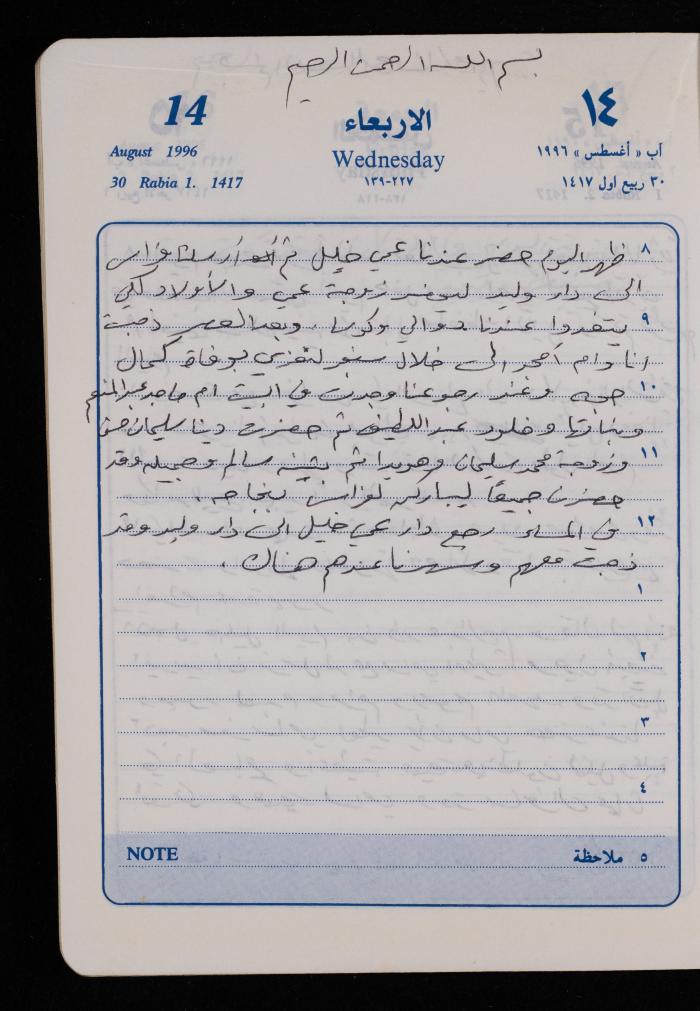 بسم الله الرحمن الرحيم
14 الاربعاء ١٤
August 1996 Wednesday آب « أغسطس » ١٩٩٦
30 Rabia 1. 1417 ١٣٩-٢٢٧ ٣٠ ربيع اول ١٤١٧
٨ ظهر اليوم حضر عندنا عمي خليل ثم أرسلنا فراس
الى دار وليد ليحضر زوجة عمي والأولاد لكي
٩ يتغدوا عندنا دوالي وكوسا. وبعد العصر ذهبت
انا وام أمجد الى خلال لنعزي بوفاة كمال
١٠ وعند رجوعنا وجدت في البيت ام ماجد عبد المنعم
وبناتها وخلود عبد اللطيف ثم حضرت دينا سليمان
١١ وزوجة محمد سليمان وهويدا ثم بثينه سالم وجميله وقد
حضرن جميعًا ليباركن لفراس بنجاحه.
١٢ في المساء رجع دار عمي خليل الى دار وليد وقد
ذهبت معهم وسهرنا عندهم هناك.
١
٢
٣
٤
NOTE ٥ ملاحظة